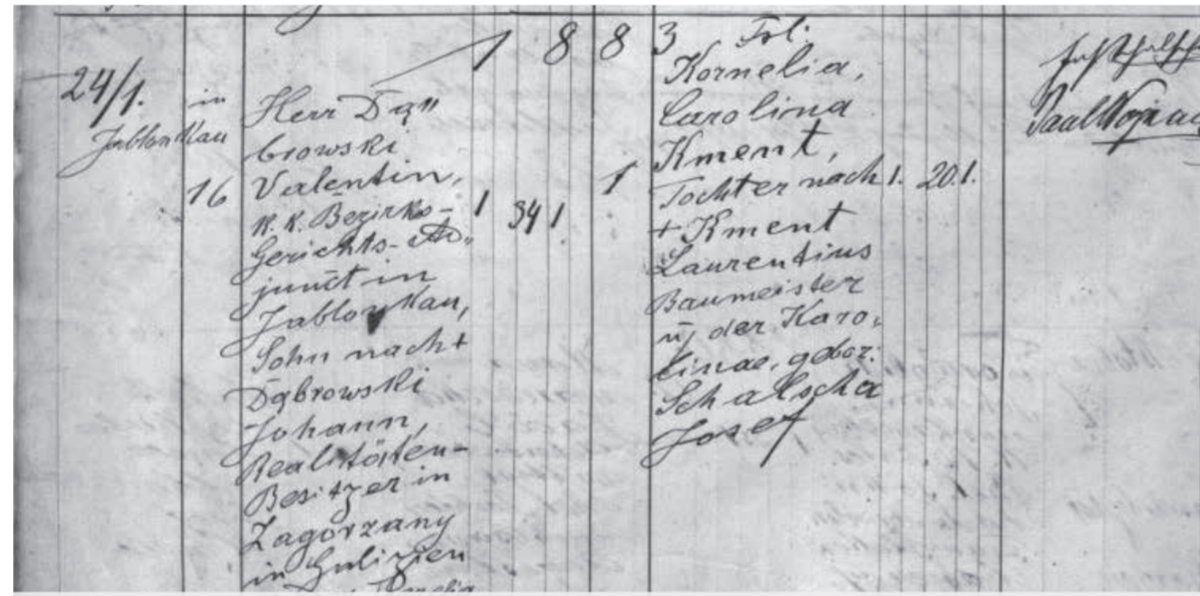 1 8 8 3
24/1.
in
Jablonkau
16
Herr Dą„
browski
Valentin,
K. K. Bezirks-
Gerichts-Ad„
junct in
Jablonkau,
Sohn nach +
Dąbrowski
Johann,
Realitäten-
Besitzer in
Zagórzany
in Galizien
1 34 1
1
Frl.
Kornelia,
Carolina
Kment,
Tochter nach
+ Kment
Laurentius
Baumeister
u, der Karo„
linae, gebor:
Schalscha
Josef
1. 20 1.
Paul